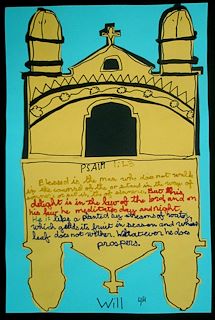 PSALM 1:1-3
Blessed is the man who does not walk
in the counsel of the or stand in the way of
sinners or sit in the of . But his
delight is in the law of the lord and on
his law he meditates day and night.
He is like a planted by streams of water,
which yields its fruit in season and whose
leaf does not wither. Whatever he does
prospers.
Will